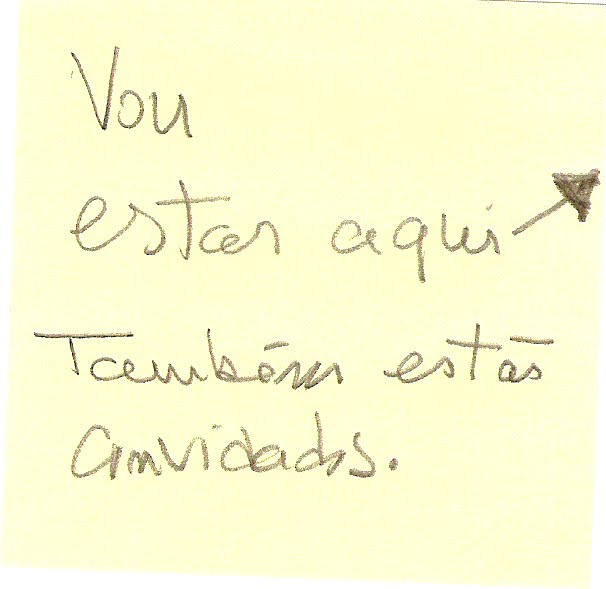 Vou
estar aqui
Também estão
convidados.